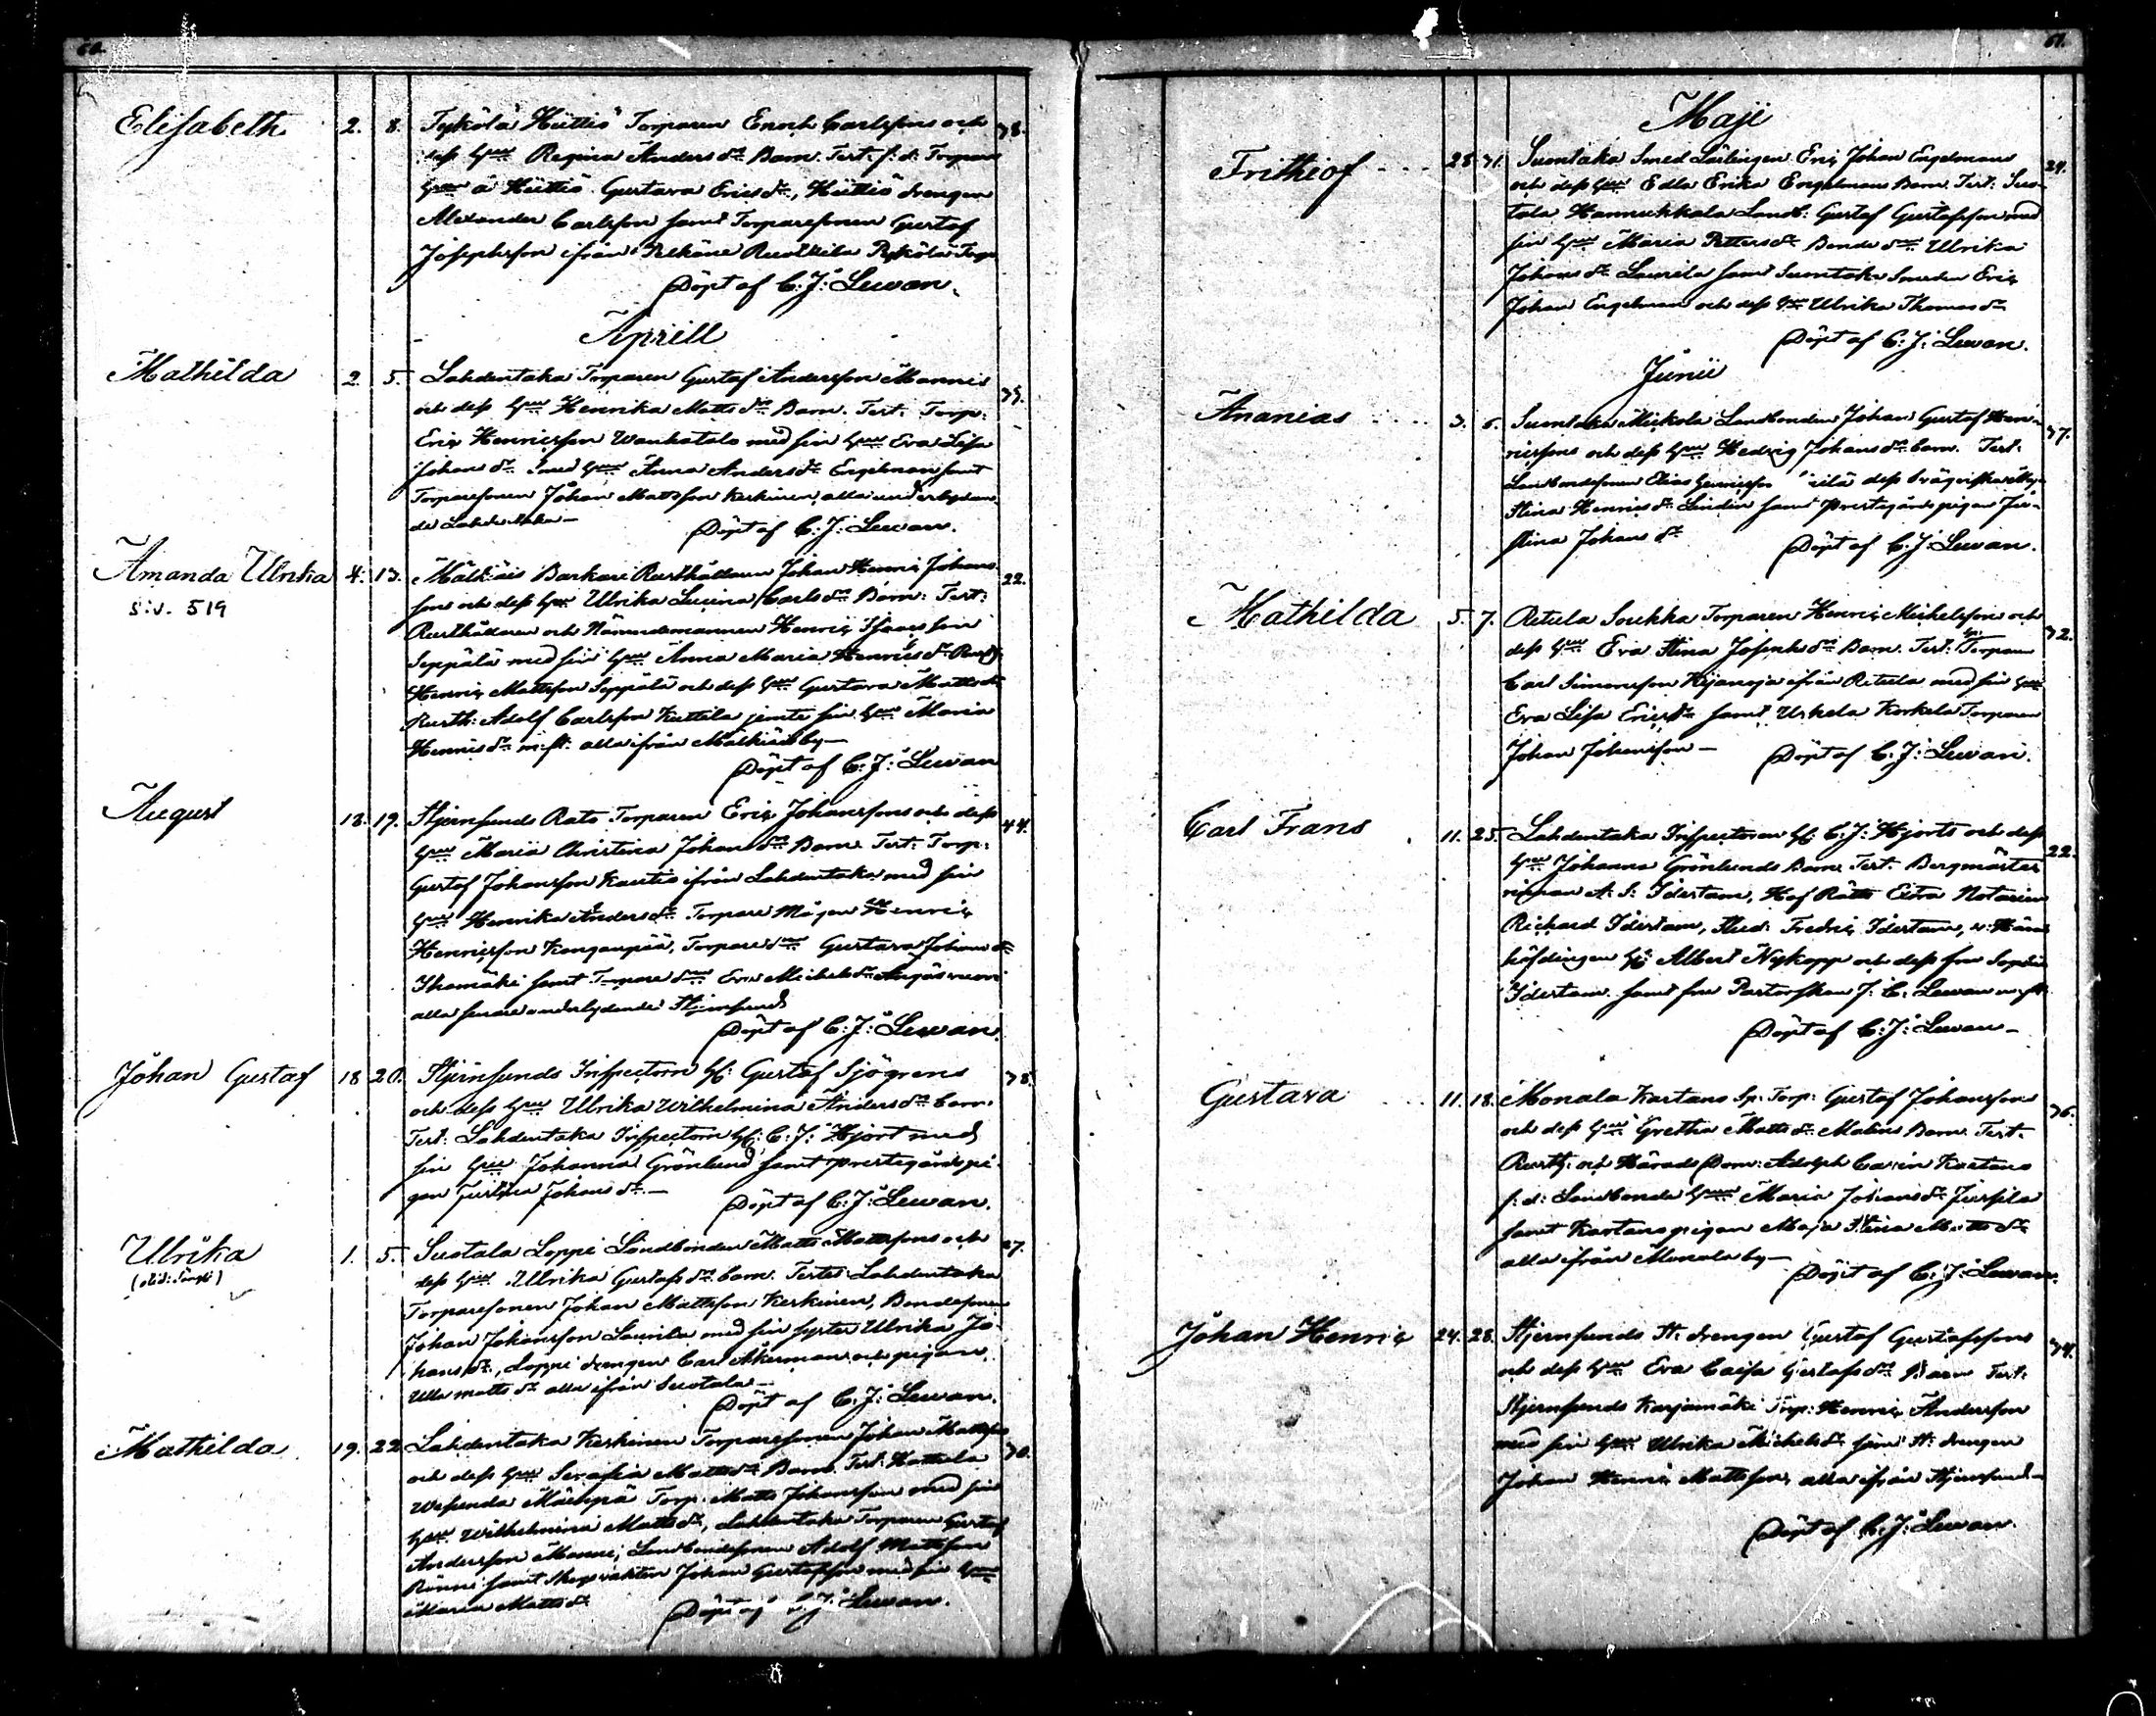 60.
Elisabeth 2. 8. Tyköla Hüttis Torparen Enoch Carlssons och 38.
dess hru Regina Andersdr Barn. Test. f: d: Torpare
hru å Hüttis Gustava Ericsdr, Hüttis drengen
Alexander Carlsson samt Torparesonen Gustaf
Josephsson ifrån
Döpt af C: J: Lewan.
Aprill
Mathilda 2 5. Lahdentaka Torparen Gustaf Andersson Mannis
och dess hru Henrika Mattsdr Barn. Test. Torp:
Eric Henricsson med sin hru Eva Lisa
Johansdr Smed hru Anna Andersdr Engelman samt
Torparesonen Johan Mattsson Keskinen, alla underlydan-
de Lahdentaka —
Döpt af C: J: Lewan.
Amanda Ulrika 4. 13. Mälkiäis Barkari Rusthållaren Johan Henric Johans- 22.
siv. 519
sons och dess hru Ulrika Lucina Carlsdr Barn: Test:
Rusthållaren och Nämndemannen Henric
Seppälä med sin hru Anna Maria Henricsdr Rusth:
Henric Mattsson Seppälä och dess hru Gustava Mattsdr
Rusth: Adolf Carlsson Kuttila jemte sin hru Maria
Henricsdr m: fl: alla ifrån Mälkiäis by —
Döpt af C: J: Lewan
August 18. 19. Stjernsunds Rato Torparen Eric Johanssons och dess 44.
hru Maria Christina Johansdr Barn. Test: Torp:
Gustaf Johansson Kautis ifrån Lahdentaka med sin
hru Henrika Andersdr Torpare Mågen Henric
Henricsson Kangaspää, Torparedr Gustava Johansdr
Ihamäki samt Torparedr Eva Michelsdr
alla senare underlydande Stjernsund
Döpt af C: J: Lewan.
Johan Gustaf 18 20. Stjernsunds Inspectorn Hr: Gustaf Sjögrens 38.
och dess hru Ulrika Wilhelmina Andersdr barn.
Test: Lahdentaka Inspectorn Hr: C: J: Hjort med
sin hru Johanna Grönlund samt prestegårds pi-
gan Justina Johansdr —
Döpt af C: J: Lewan.
Ulrika 1. 5. Suotala Loppi Landbonden Matts Mattssons och 27.
dess hru Ulrika Gustafsdr barn. Testes Lahdentaka
Torparesonen Johan Mattsson Keskinen, Bondesonen
Johan Johansson Laurila med sin syster Ulrika Jo-
hansdr, Loppi drengen Carl Åkerman och pigan
Ulla Mattsdr alla ifrån Suotala —
Döpt af C: J: Lewan.
Mathilda 19. 22 Lahdentaka Keskinen Torparesonen Johan Mattssons 30.
och dess hru Serafia Mattsdr Barn. Test: Hattula
Wesunda Mäenpä Torp. Matts Johansson med sin
hru Wilhelmina Mattsdr, Lahdentaka Torparen Gustaf
Andersson Manni, Landbondesonen Adolf Mattsson
Rinni samt Skogvakten Johan Gustafsson med sin hru
Maria Mattsdr
Döpt af C: J: Lewan.
61.
Maji
Frithiof 28 31. Suontaka Smed Lärlingen Eric Johan Engelmans 24.
och dess hru Edla Erika Engelmans Barn. Test: Suo-
tala Hannukkala Landb: Gustaf Gustafsson med
sin hru Maria Pettersdr Bondedr Ulrika
Johansdr Laurila samt Suontaka Smeden Eric
Johan Engelman och dess hru Ulrika Thomasdr
Döpt af C: J: Lewan.
Junii
Ananias 3. 6. Suontaka Mickola Landbonden Johan Gustaf Hen- 37.
ricssons och dess hru Hedvig Johansdr barn. Test:
Landbondesonen Elias Henricsson dess
Stina Henricsdr Lindin samt Prestegårds pigan Ju-
stina Johansdr
Döpt af C: J: Lewan.
Mathilda 5. 7. Retula Soukka Torparen Henric Michelssons och 32.
dess hru Eva Stina Josephsdr Barn. Test: Torparen
Carl Simonsson Kijanoja ifrån Retula med sin hru
Eva Lisa Ericsdr samt Uskela Korkela Torparen
Johan Johansson —
Döpt af C: J: Lewan.
Carl Frans 11. 25. Lahdentaka Inspectoren Hr: C: J: Hjorts och dess 22.
hru Johanna Grönlunds Barn. Test. Bergmästar
A: S: Idestam, Hof Rätts Extra Notarien
Richard Idestam, Stud: Fredric Idestam, v: Härads
höfdingen Hr: Albert Nykopp och dess fru Sophie
Idestam samt fru Pastorskan J: C: Lewan m: fl:
Döpt af C: J: Lewan —
Gustava 11. 18. Monala Kartano Sp: Torp: Gustaf Johanssons 36.
och dess hru Gretha Mattsdr Malins Barn. Test.
Rusth: och Härads Dom: Adolph Cavin Kartano
f: d: Landbonde hru Maria Johansdr Jussila
samt Kartano pigan Maja Stina Mattsdr
alla ifrån Monala by —
Döpt af C: J: Lewan.
Johan Henric 24. 28. Stjernsunds St: drengen Gustaf Gustafssons 34.
och dess hru Eva Caisa Gustafsdr Barn Test:
Stjernsunds Karjamäki Torp: Henric Andersson
med sin hru Ulrika Michelsdr samt St: drengen
Johan Henric Mattsson, alla ifrån Stjernsund —
Döpt af C: J: Lewan.